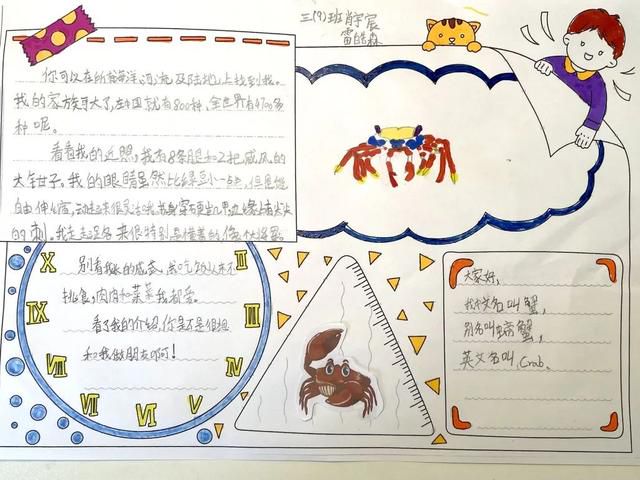 三(9)班肖宇宸
雷皓森
你可以在所有海洋河流及陆地上找到我。
我的家族可大了,在中国就有800种,全世界有4700多
种呢。
看看我的近照,我有8条腿和2把威风的
大钳子。我的眼睛虽然比绿豆小一点,但是能
自由伸缩,
的刺。我走起路来很特别,
别看我的成态,我吃饭从来不
挑食,肉肉和菜菜我都爱。
看了我的介绍,你是不是很想
和我做朋友啊!
X
IX
VIII
VII
VI
V
IV
III
II
大家好,
我中文名叫蟹,
别名叫螃蟹,
英文名叫,Crab。